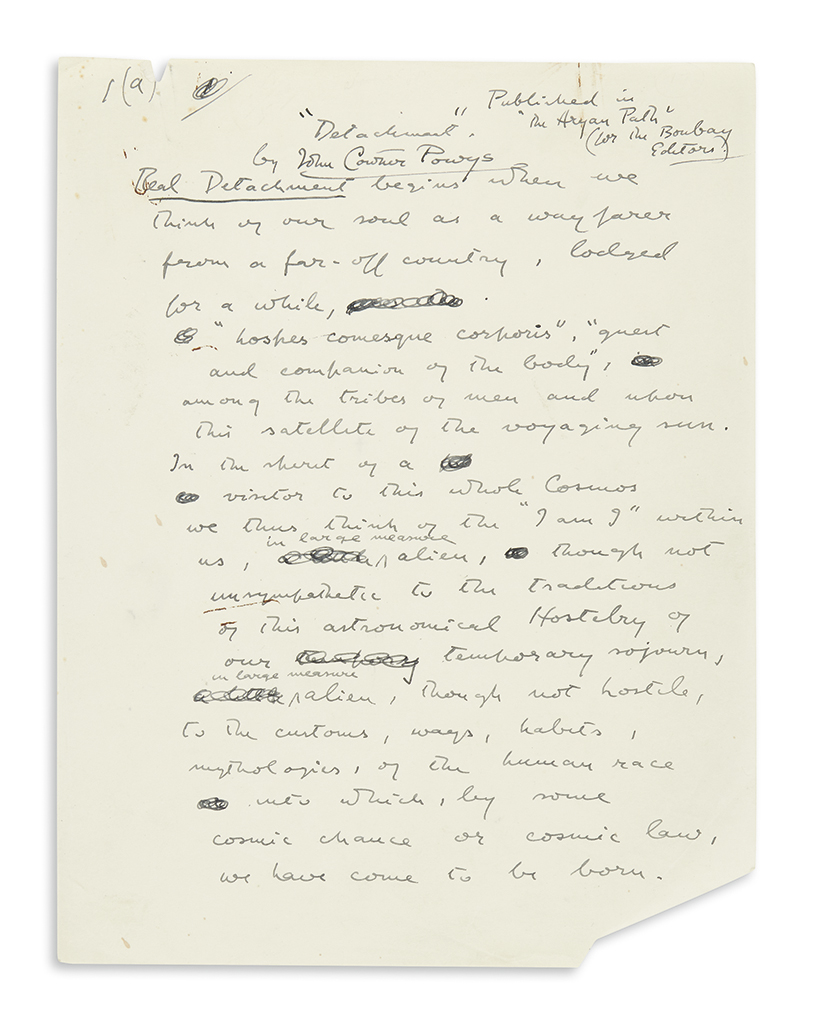 1(a)
Published in
"The Aryan Path"
(for the Bombay
Editors)
"Detachment".
by John Cowper Powys
Real Detachment begins when we
think of our soul as a wayfarer
from a far-off country, lodged
for a while,
"hospes comesque corporis", "guest
and companion of the body",
among the tribes of men and upon
this satellite of the voyaging sun.
In the spirit of a
visitor to this whole Cosmos
we thus think of the "I am I" within
in large measure
us, alien, though not
unsympathetic to the traditions
of this astronomical Hostelry of
our temporary sojourn,
in large measure
alien, though not hostile,
to the customs, ways, habits,
mythologies, of the human race
into which, by some
cosmic chance or cosmic law,
we have come to be born.